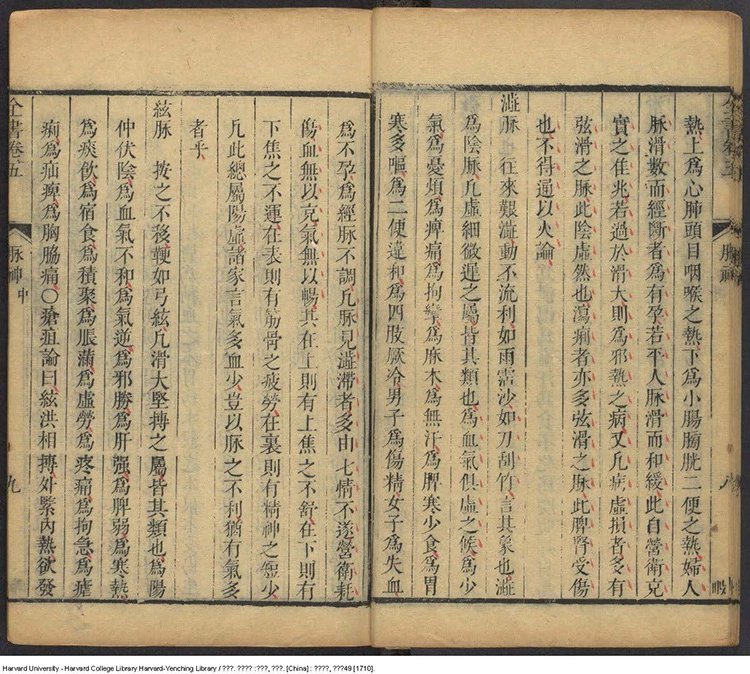 熱上爲心肺頭目咽喉之熱下爲小腸膀胱二便之熱婦人
脉滑數而經斷者爲有孕若平人脉滑而和緩此自營衛充
實之佳兆若過於滑大則爲邪熱之病又凡病虛損者多有
弦滑之脉此陰虛然也瀉痢者亦多弦滑之脉此脾腎受傷
也不得通以火論
澁脉 往來艱澁動不流利如雨霑沙如刀刮竹言其象也澁
爲陰脉凡虛細微遲之屬皆其類也爲血氣俱虛之候爲少
氣爲憂煩爲痺痛爲拘攣爲麻木爲無汗爲脾寒少食爲胃
寒多嘔爲二便違和爲四肢厥冷男子爲傷精女子爲失血
八
爲不孕爲經脉不調凡脉見澁滯者多由七情不遂營衛耗
傷血無以充氣無以暢其在上則有上焦之不舒在下則有
下焦之不運在表則有筋骨之疲勞在裏則有精神之短少
凡此總屬陽虛諸家言氣多血少豈以脉之不利猶有氣多
者乎
絃脉 按之不移鞕如弓絃凡滑大堅搏之屬皆其類也爲陽
仲伏陰爲血氣不和爲氣逆爲邪勝爲肝强爲脾弱爲寒熱
爲痰飲爲宿食爲積聚爲脹滿爲虛勞爲疼痛爲拘急爲瘧
痢爲疝痺爲胸脇痛○瘡疽論曰絃洪相搏外緊內熱欲發
全書卷五 脉神中 九
Harvard University - Harvard College Library Harvard-Yenching Library / ???. ???? :???, ???. [China] : ????, ???49 [1710].